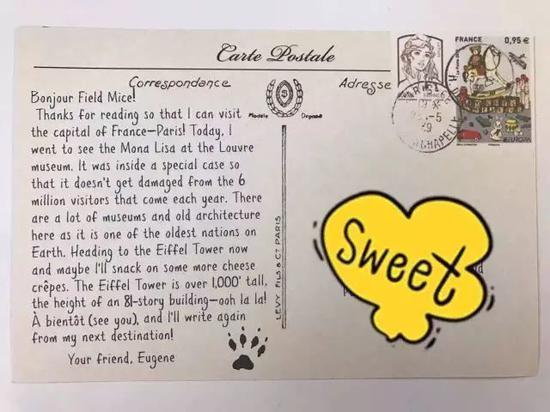 Carte Postale
Correspondance
Adresse
Bonjour Field Mice!
Thanks for reading so that I can visit
the capital of France–Paris! Today, I
went to see the Mona Lisa at the Louvre
museum. It was inside a special case so
that it doesn't get damaged from the 6
million visitors that come each year. There
are a lot of museums and old architecture
here as it is one of the oldest nations on
Earth. Heading to the Eiffel Tower now
and maybe I'll snack on some more cheese
crêpes. The Eiffel Tower is over 1,000' tall,
the height of an 81-story building–ooh la la!
À bientôt (see you), and I'll write again
from my next destination!
Your friend, Eugene
Modèle Déposé
LEVY FILS & Cᵗ PARIS
FRANCE 0,95 €
EUROPA
Sweet